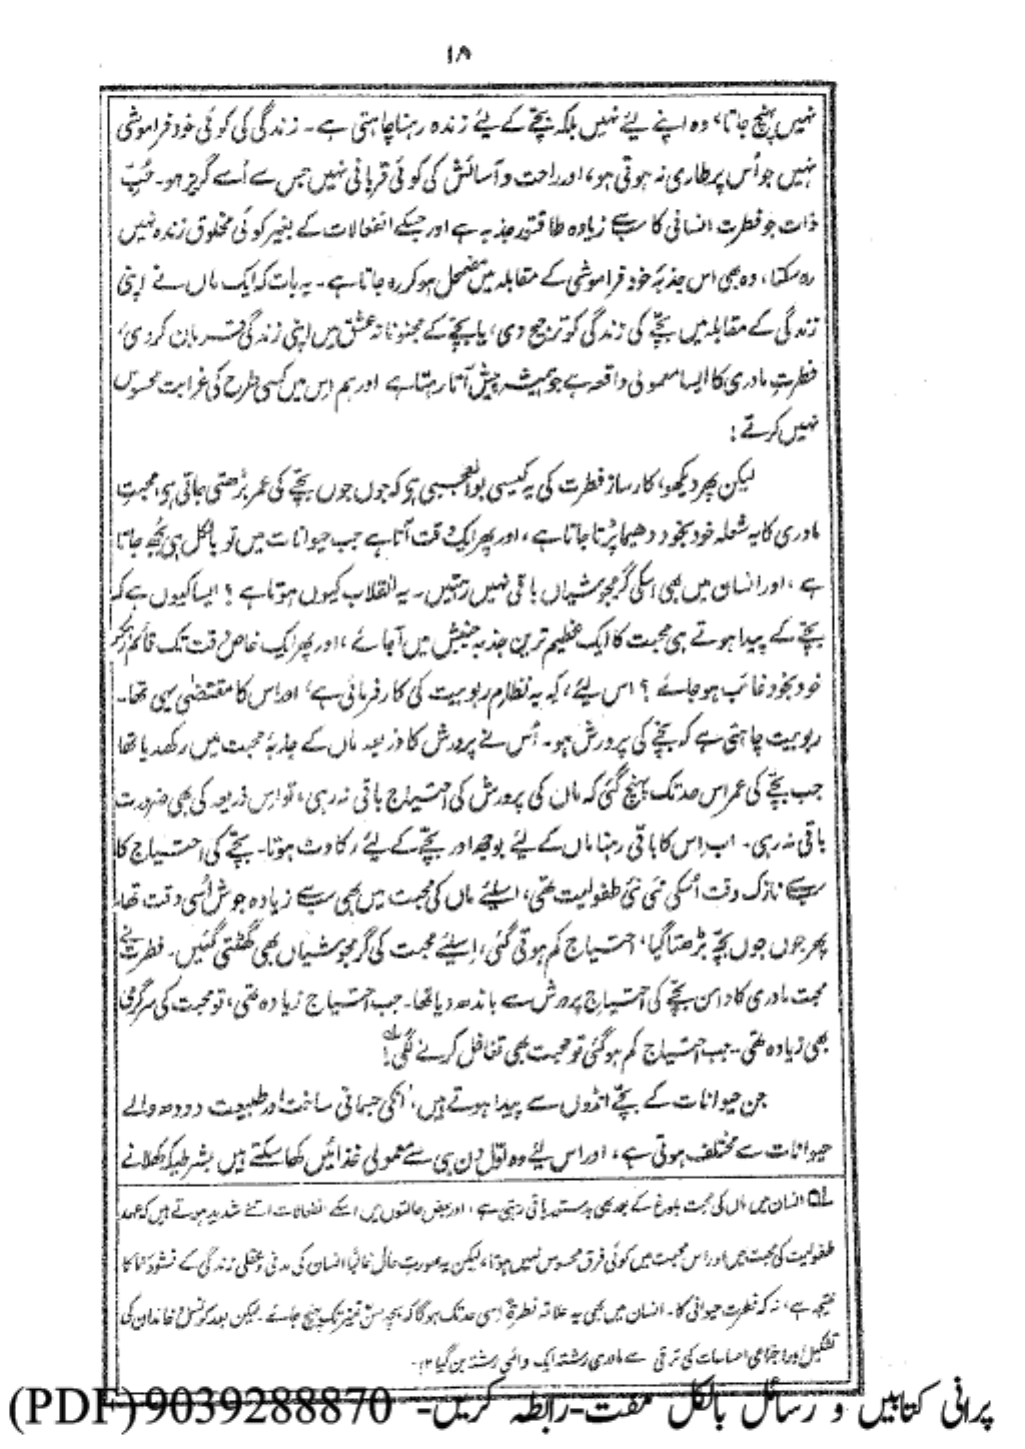 ۱۸
نہیں پہنچ جاتا، وہ اپنے لیے نہیں بلکہ بچّے کے لیے زندہ رہنا چاہتی ہے۔ زندگی کی کوئی خود فراموشی
نہیں جو اُس پر طاری نہ ہوتی ہو، اور راحت و آسائش کی کوئی قربانی نہیں جس سے اُسے گریز ہو۔ حُبِّ
ذات جو فطرت انسانی کا سب سے زیادہ طاقتور جذبہ ہے اور جسکے انفعالات کے بغیر کوئی مخلوق زندہ نہیں
رہ سکتا، وہ بھی اس جذبۂ خود فراموشی کے مقابلہ میں مضمحل ہو کر رہ جاتا ہے۔ یہ بات کہ ایک ماں نے اپنی
زندگی کے مقابلہ میں بچّے کی زندگی کو ترجیح دی، یا بچّے کے مجنونانہ عشق میں اپنی زندگی قربان کردی،
فطرتِ مادری کا ایسا معمولی واقعہ ہے جو ہمیشہ پیش آتا رہتا ہے اور ہم اس میں کسی طرح کی غرابت محسوس
نہیں کرتے!
لیکن پھر دیکھو، کارساز فطرت کی یہ کیسی بوالعجبی ہو کہ جوں جوں بچّے کی عمر بڑھتی جاتی ہو، محبتِ
مادری کا یہ شعلہ خود بخود دھیما پڑتا جاتا ہے، اور پھر ایک وقت آتا ہے جب حیوانات میں تو بالکل ہی بُجھ جاتا
ہے، اور انسان میں بھی اسکی گرمجوشیاں باقی نہیں رہتیں۔ یہ انقلاب کیوں ہوتا ہے؟ ایسا کیوں ہے کہ
بچّے کے پیدا ہوتے ہی محبت کا ایک عظیم ترین جذبہ جنبش میں آجائے، اور پھر ایک خاص وقت تک قائم رہکر
خود بخود غائب ہو جائے؟ اس لیے، کہ یہ نظامِ ربوبیت کی کارفرمائی ہے، اور اس کا مقتضٰی یہی تھا۔
ربوبیت چاہتی ہے کہ بچّے کی پرورش ہو۔ اُس نے پرورش کا ذریعہ ماں کے جذبۂ محبت میں رکھدیا تھا
جب بچّے کی عمر اس حد تک پہنچ گئی کہ ماں کی پرورش کی احتیاج باقی نہ رہی، تو اس ذریعہ کی بھی ضرورت
باقی نہ رہی۔ اب اِس کا باقی رہنا ماں کے لیے بوجھ اور بچّے کے لیے رکاوٹ ہوتا۔ بچّے کی احتیاج کا
سب سے نازک وقت اُسکی نئی نئی طفولیت تھی، اسلئے ماں کی محبت میں بھی سب سے زیادہ جوش اُسی وقت تھا،
پھر جوں جوں بچّہ بڑھتا گیا، احتیاج کم ہوتی گئی، اسلیے محبت کی گرمجوشیاں بھی گھٹتی گئیں۔ فطرت نے
محبت مادری کا دامن بچّے کی احتیاجِ پرورش سے باندھ دیا تھا۔ جب احتیاج زیادہ تھی، تو محبت کی سرگرمی
بھی زیادہ تھی۔ جب احتیاج کم ہو گئی تو محبت بھی تغافل کرنے لگی!
جن حیوانات کے بچّے انڈوں سے پیدا ہوتے ہیں، اُنکی جسمانی ساخت اور طبیعت دودھ والے
حیوانات سے مختلف ہوتی ہے، اور اس لیے وہ اوّل دن ہی سے معمولی غذائیں کھا سکتے ہیں بشرطیکہ کھلانے
لہ انسان میں ماں کی محبت بلوغ کے بعد بھی بدستور باقی رہتی ہے، اور بعض حالتوں میں اسکے انفعالات اتنے شدید ہوتے ہیں کہ عہد
طفولیت کی محبت میں اور اس محبت میں کوئی فرق محسوس نہیں ہوتا، لیکن یہ صورتِ حال غالباً انسان کی مدنی و عقلی زندگی کے نشو و نما کا
نتیجہ ہے، نہ کہ فطرت حیوانی کا۔ انسان میں بھی یہ علاقہ فطرۃً اسی حد تک ہوگا کہ بچہ سنِّ تمیز تک پہنچ جائے۔ لیکن بعد کو نسل و خاندان کی
تشکیل اور اجتماعی احساسات کی ترقی سے مادری رشتہ ایک دائمی رشتہ بن گیا ۱۲۔
پرانی کتابیں و رسائل بالکل مفت-رابطہ کریں- 9039288870 (PDF)